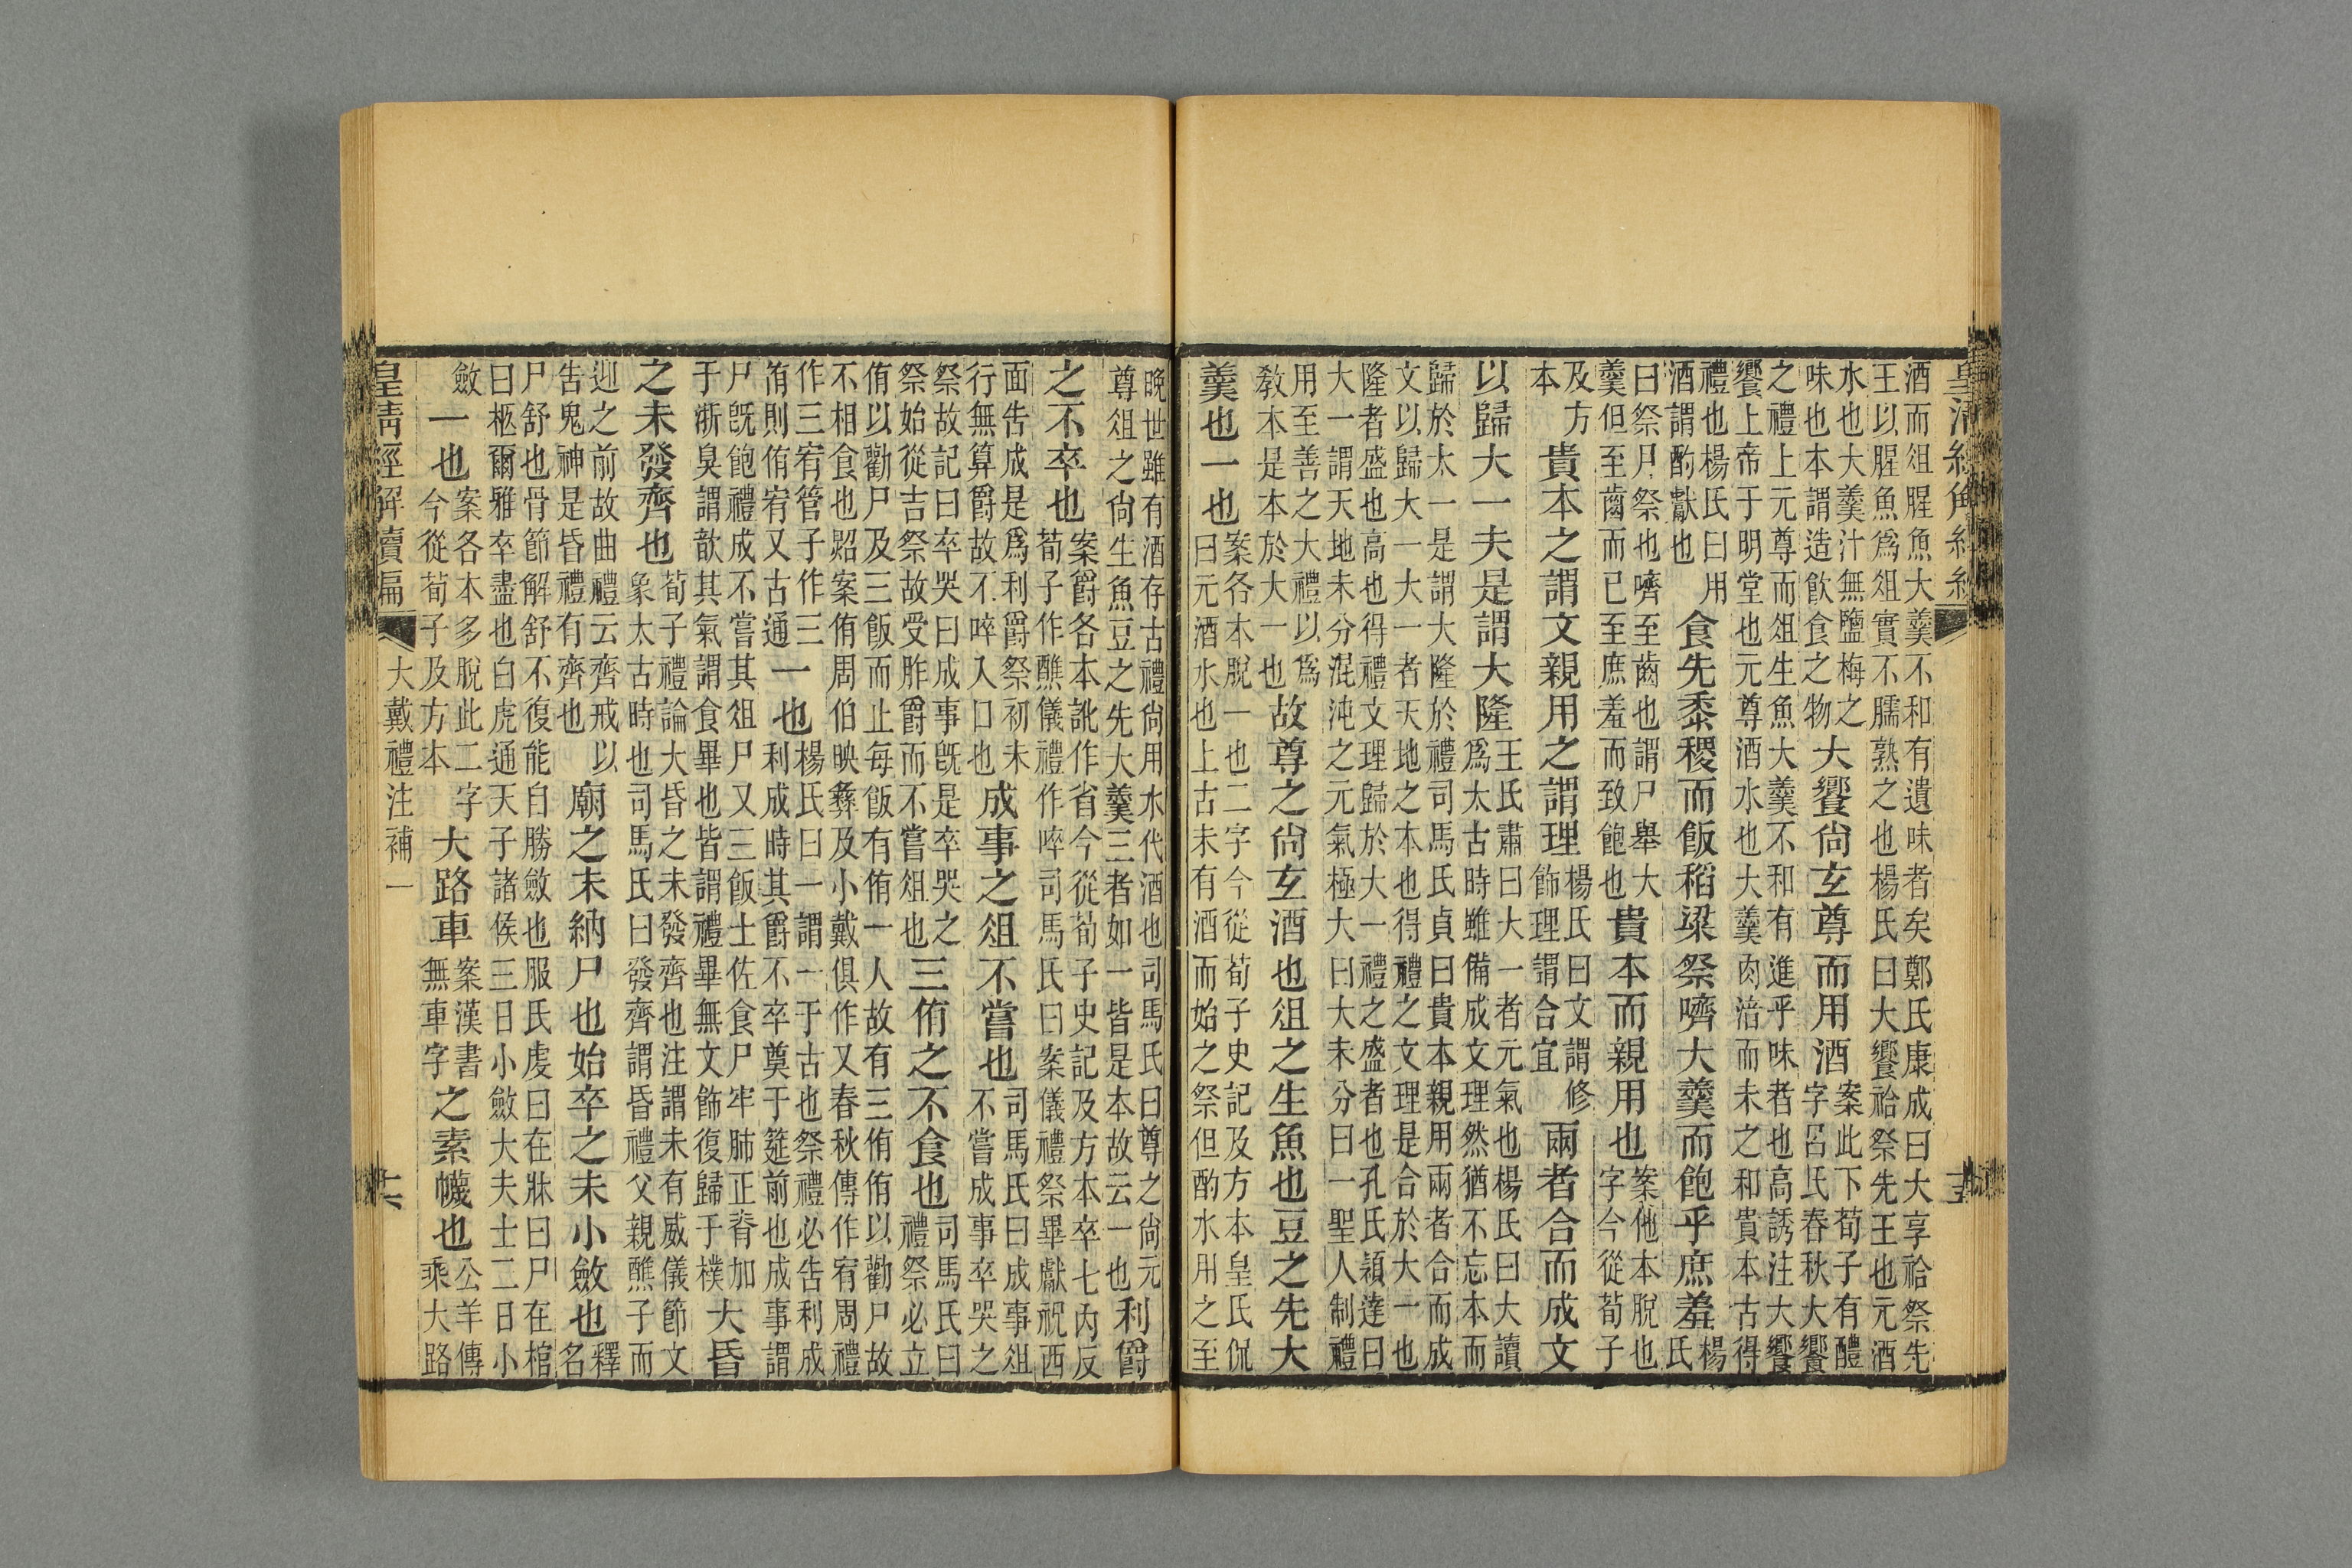 皇清經解續編
十五
酒而俎腥魚大羹不和有遺味者矣鄭氏康成曰大享祫祭先
王以腥魚爲俎實不臑熟之也楊氏曰大饗祫祭先王也元酒
水也大羹汁無鹽梅之
味也本謂造飲食之物
大饗尙玄尊而用酒
案此下荀子有醴
字呂氏春秋大饗
之禮上元尊而俎生魚大羹不和有進乎味者也高誘注大饗
饗上帝于明堂也元尊酒水也大羹肉湆而未之和貴本古得
禮也楊氏曰用
酒謂酌獻也
食先黍稷而飯稻粱祭嚌大羹而飽乎庶羞
楊
氏
曰祭尸祭也嚌至齒也謂尸舉大
羹但至齒而已至庶羞而致飽也
貴本而親用也
案他本脫也
字今從荀子
及方
本
貴本之謂文親用之謂理
楊氏曰文謂修
飾理謂合宜
兩者合而成文
以歸大一夫是謂大隆
王氏肅曰大一者元氣也楊氏曰大讀
爲太古時雖備成文理然猶不忘本而
歸於太一是謂大隆於禮司馬氏貞曰貴本親用兩者合而成
文以歸大一大一者天地之本也得禮之文理是合於大一也
隆者盛也高也得禮文理歸於大一禮之盛者也孔氏穎達曰
大一謂天地未分混沌之元氣極大曰大未分曰一聖人制禮
用至善之大禮以爲
敎本是本於大一也
故尊之尙玄酒也俎之生魚也豆之先大
羹也一也
案各本脫一也二字今從荀子史記及方本皇氏侃
曰元酒水也上古未有酒而始之祭但酌水用之至
晚世雖有酒存古禮尙用水代酒也司馬氏曰尊之尙元
尊俎之尙生魚豆之先大羹三者如一皆是本故云一也
利爵
之不卒也
案爵各本訛作省今從荀子史記及方本卒七內反
荀子作醮儀禮作啐司馬氏曰案儀禮祭畢獻祝西
面告成是爲利爵祭初未
行無算爵故不啐入口也
成事之俎不嘗也
司馬氏曰成事俎
不嘗成事卒哭之
祭故記曰卒哭曰成事旣是卒哭之
祭始從吉祭故受胙爵而不嘗俎也
三侑之不食也
司馬氏曰
禮祭必立
侑以勸尸及三飯而止每飯有侑一人故有三侑侑以勸尸故
不相食也照案侑周伯映彝及小戴俱作又春秋傳作宥周禮
作三宥管子作三
侑則侑宥又古通
一也
楊氏曰一謂一于古也祭禮必告利成
利成時其爵不卒奠于筵前也成事謂
尸旣飽禮成不嘗其俎尸又三飯士佐食尸牢肺正脊加
于淅臭謂歆其氣謂食畢也皆謂禮畢無文飾復歸于樸
大昏
之未發齊也
荀子禮論大昏之未發齊也注謂未有威儀節文
象太古時也司馬氏曰發齊謂昏禮父親醮子而
迎之前故曲禮云齊戒以
告鬼神是昏禮有齊也
廟之未納尸也始卒之未小斂也
釋
名
尸舒也骨節解舒不復能自勝斂也服氏虔曰在牀曰尸在棺
曰柩爾雅卒盡也白虎通天子諸侯三日小斂大夫士二日小
斂
一也
案各本多脫此二字
今從荀子及方本
大路車
案漢書
無車字
之素幭也
公羊傳
乘大路
皇清經解續編
大戴禮注補一
十六